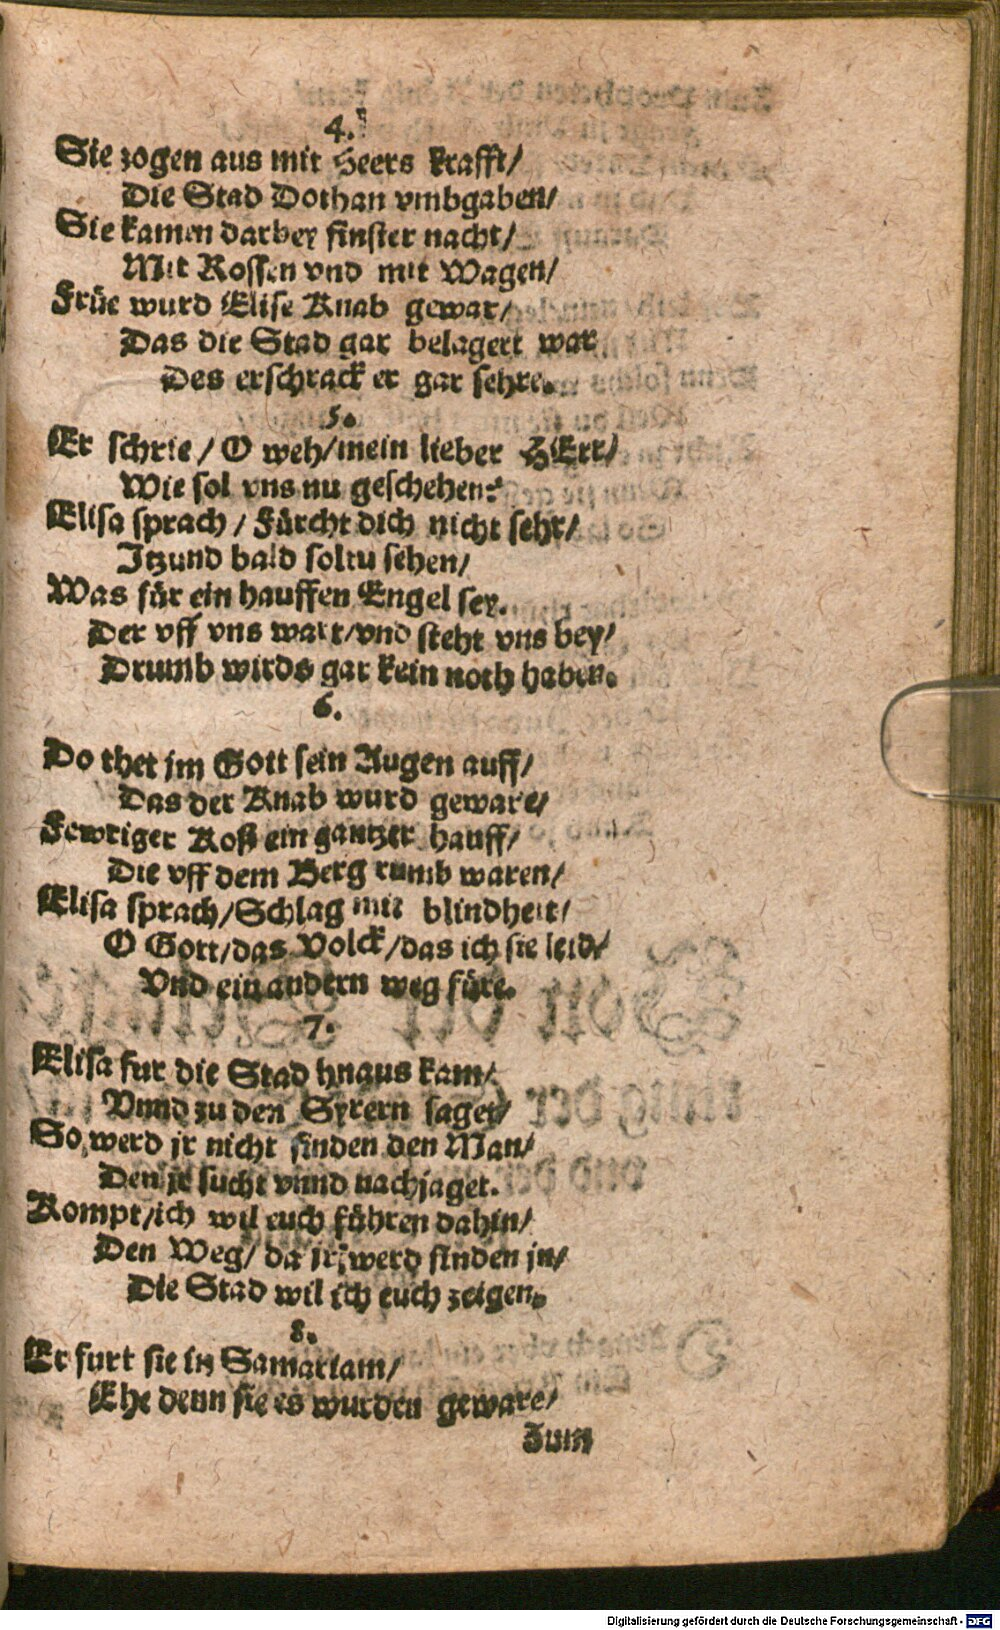 4.
Sie zogen aus mit Heers krafft/
Die Stad Dothan vmbgaben/
Sie kamen darbey finster nacht/
Mit Rossen vnd mit Wagen/
Früe wurd Elise Knab gewar/
Das die Stad gar belagert war
Des erschrack er gar sehre.
5.
Er schrie/ O weh/mein lieber HErr/
Wie sol vns nu geschehen:
Elisa sprach/ Fürcht dich nicht sehr/
Itzund bald soltu sehen/
Was für ein hauffen Engel sey.
Der vff vns wart/vnd steht vns bey/
Drumb wirds gar kein noth haben.
6.
Do thet jm Gott sein Augen auff/
Das der Knab wurd geware/
Fewriger Roß ein gantzer hauff/
Die vff dem Berg rumb waren/
Elisa sprach/Schlag mit blindheit/
O Gott/das Volck/das ich sie leid/
Vnd ein andern weg füre.
7.
Elisa fur die Stad hnaus kam/
Vnnd zu den Syrern saget/
So werd jr nicht finden den Man/
Den jr sucht vnnd nachjaget.
Kompt/ich wil euch führen dahin/
Den Weg/ da jr werd finden jn/
Die Stad wil ich euch zeigen.
8.
Er furt sie in Samariam/
Ehe denn sie es wurden geware/
Zum
Digitalisierung gefördert durch die Deutsche Forschungsgemeinschaft - DFG